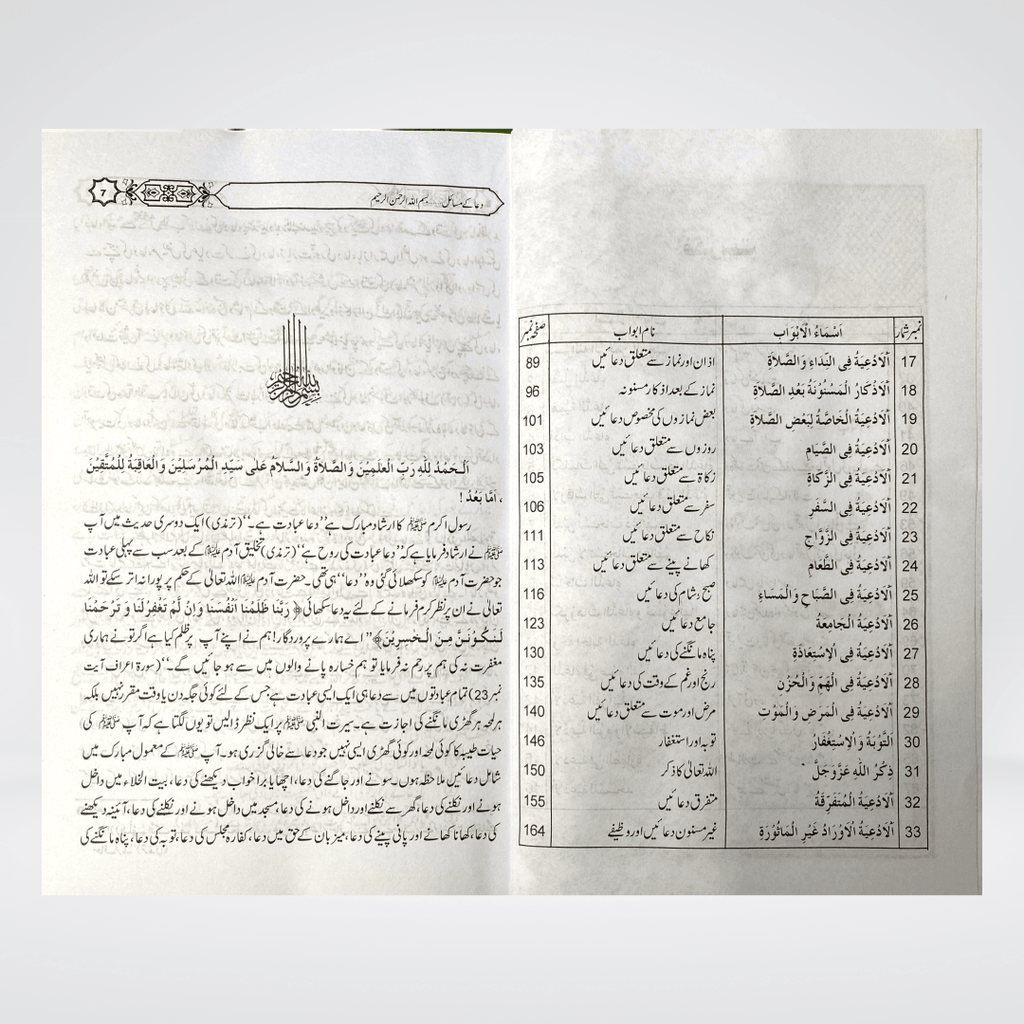 نمبر شمار اَسْمَاءُ الْاَبْوَابِ نام ابواب صفحہ نمبر
17 اَلْاَدْعِيَةُ فِى النِّدَاءِ وَالصَّلاَةِ اذان اور نماز سے متعلق دعائیں 89
18 اَلْاَذْكَارُ الْمَسْنُوْنَةُ بَعْدِ الصَّلاَةِ نماز کے بعد اذکار مسنونہ 96
19 اَلْاَدْعِيَةُ الْخَاصَّةُ لِبَعْضِ الصَّلاَةِ بعض نمازوں کی مخصوص دعائیں 101
20 اَلْاَدْعِيَةُ فِى الصِّيَامِ روزوں سے متعلق دعائیں 103
21 اَلْاَدْعِيَةُ فِى الزَّكَاةِ زکاۃ سے متعلق دعائیں 105
22 اَلْاَدْعِيَةُ فِى السَّفَرِ سفر سے متعلق دعائیں 106
23 اَلْاَدْعِيَةُ فِى الزَّوَّاجِ نکاح سے متعلق دعائیں 111
24 اَلْاَدْعِيَةُ فِى الطَّعَامِ کھانے پینے سے متعلق دعائیں 113
25 اَلْاَدْعِيَةُ فِى الصَّبَاحِ وَالْمَسَاءِ صبح و شام کی دعائیں 116
26 اَلْاَدْعِيَةُ الْجَامِعَةُ جامع دعائیں 123
27 اَلْاَدْعِيَةُ فِى الْاِسْتِعَاذَةِ پناہ مانگنے کی دعائیں 130
28 اَلْاَدْعِيَةُ فِى الْهَمِّ وَالْحُزْنِ رنج اور غم کے وقت کی دعائیں 135
29 اَلْاَدْعِيَةُ فِى الْمَرَضِ وَالْمَوْتِ مرض اور موت سے متعلق دعائیں 140
30 اَلتَّوْبَةُ وَالْاِسْتِغْفَارُ توبہ اور استغفار 146
31 ذِكْرُ اللّٰهِ عَزَّوَجَلَّ اللہ تعالیٰ کا ذکر 150
32 اَلْاَدْعِيَةُ الْمُتَفَرِّقَةُ متفرق دعائیں 155
33 اَلْاَدْعِيَةُ الْاَوْرَادُ غَيْرِ الْمَاثُوْرَةِ غیر مسنون دعائیں اور وظیفے 164
دعا کے مسائل ... بسم اللہ الرحمٰن الرحیم 7
بسم الله الرحمن الرحيم
اَلْحَمْدُ لِلّٰهِ رَبِّ الْعٰلَمِيْنَ وَالصَّلاَةُ وَالسَّلاَمُ عَلٰى سَيِّدِ الْمُرْسَلِيْنَ وَالْعَاقِبَةُ لِلْمُتَّقِيْنَ
، اَمَّا بَعْدُ !
رسول اکرم ﷺ کا ارشاد مبارک ہے ”دعا عبادت ہے۔“ (ترمذی) ایک دوسری حدیث میں آپ
ﷺ نے ارشاد فرمایا ہے کہ ”دعا عبادت کی روح ہے“ (ترمذی) تخلیق آدم علیہ السلام کے بعد سب سے پہلی عبادت
جو حضرت آدم علیہ السلام کو سکھلائی گئی وہ ”دعا“ ہی تھی۔ حضرت آدم علیہ السلام اللہ تعالیٰ کے حکم پر پورا نہ اتر سکے تو اللہ
تعالیٰ نے ان پر نظر کرم فرمانے کے لئے یہ دعا سکھائی ﴿ رَبَّنَا ظَلَمْنَا اَنْفُسَنَا وَاِنْ لَّمْ تَغْفِرْلَنَا وَ تَرْحَمْنَا
لَنَكُوْنَنَّ مِنَ الْخٰسِرِيْنَ﴾ ”اے ہمارے پروردگار! ہم نے اپنے آپ پر ظلم کیا ہے اگر تو نے ہماری
مغفرت نہ کی ہم پر رحم نہ فرمایا تو ہم خسارہ پانے والوں میں سے ہو جائیں گے۔“ (سورۃ اعراف آیت
نمبر 23) تمام عبادتوں میں سے دعا ہی ایک ایسی عبادت ہے جس کے لئے کوئی جگہ دن یا وقت مقرر نہیں بلکہ
ہر لمحہ ہر گھڑی مانگنے کی اجازت ہے۔ سیرت النبی ﷺ پر ایک نظر ڈالیں تو یوں لگتا ہے کہ آپ ﷺ کی
حیات طیبہ کا کوئی لمحہ اور کوئی گھڑی ایسی نہیں جو دعا سے خالی گزری ہو۔ آپ ﷺ کے معمول مبارک میں
شامل دعائیں ملاحظہ ہوں۔ سونے اور جاگنے کی دعا، اچھا یا برا خواب دیکھنے کی دعا، بیت الخلاء میں داخل
ہونے اور نکلنے کی دعا، گھر سے نکلنے اور داخل ہونے کی دعا، مسجد میں داخل ہونے اور نکلنے کی دعا، آئینہ دیکھنے
کی دعا، کھانا کھانے اور پانی پینے کی دعا، میزبان کے حق میں دعا، کفارہ مجلس کی دعا، توبہ کی دعا، پناہ مانگنے کی